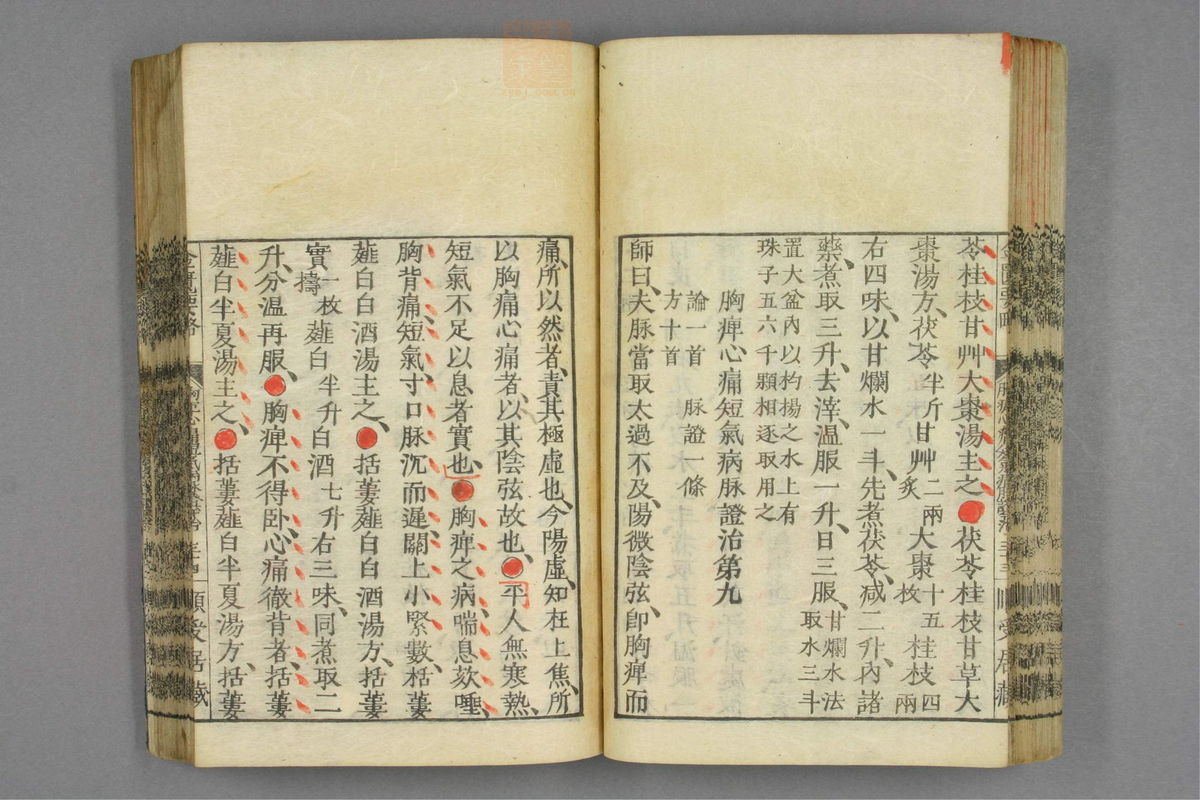 苓桂枝甘艸大棗湯主之●茯苓桂枝甘草大
棗湯方、茯苓半斤甘艸二兩炙大棗十五枚桂枝四兩
右四味、以甘爛水一斗、先煮茯苓、減二升、內諸
藥、煮取三升、去滓、溫服一升、日三服、甘爛水法取水三斗
置大盆內以杓揚之水上有
珠子五六千顆相逐取用之
胸痺心痛短氣病脉證治第九
論一首　脉證一條
方十首
師曰、夫脉當取太過不及、陽微陰弦、卽胸痺而
痛、所以然者、責其極虛也、今陽虛、知在上焦、所
以胸痛心痛者、以其陰弦故也、●平人無寒熱、
短氣不足以息者實也、●胸痺之病、喘息欬唾、
胸背痛、短氣、寸口脉沉而遲、關上小緊數、栝蔞
薤白白酒湯主之、●括蔞薤白白酒湯方、括蔞
實一枚擣薤白半升白酒七升右三味、同煮取二
升、分溫再服、●胸痺不得臥、心痛徹背者、括蔞
薤白半夏湯主之、●括蔞薤白半夏湯方、括蔞